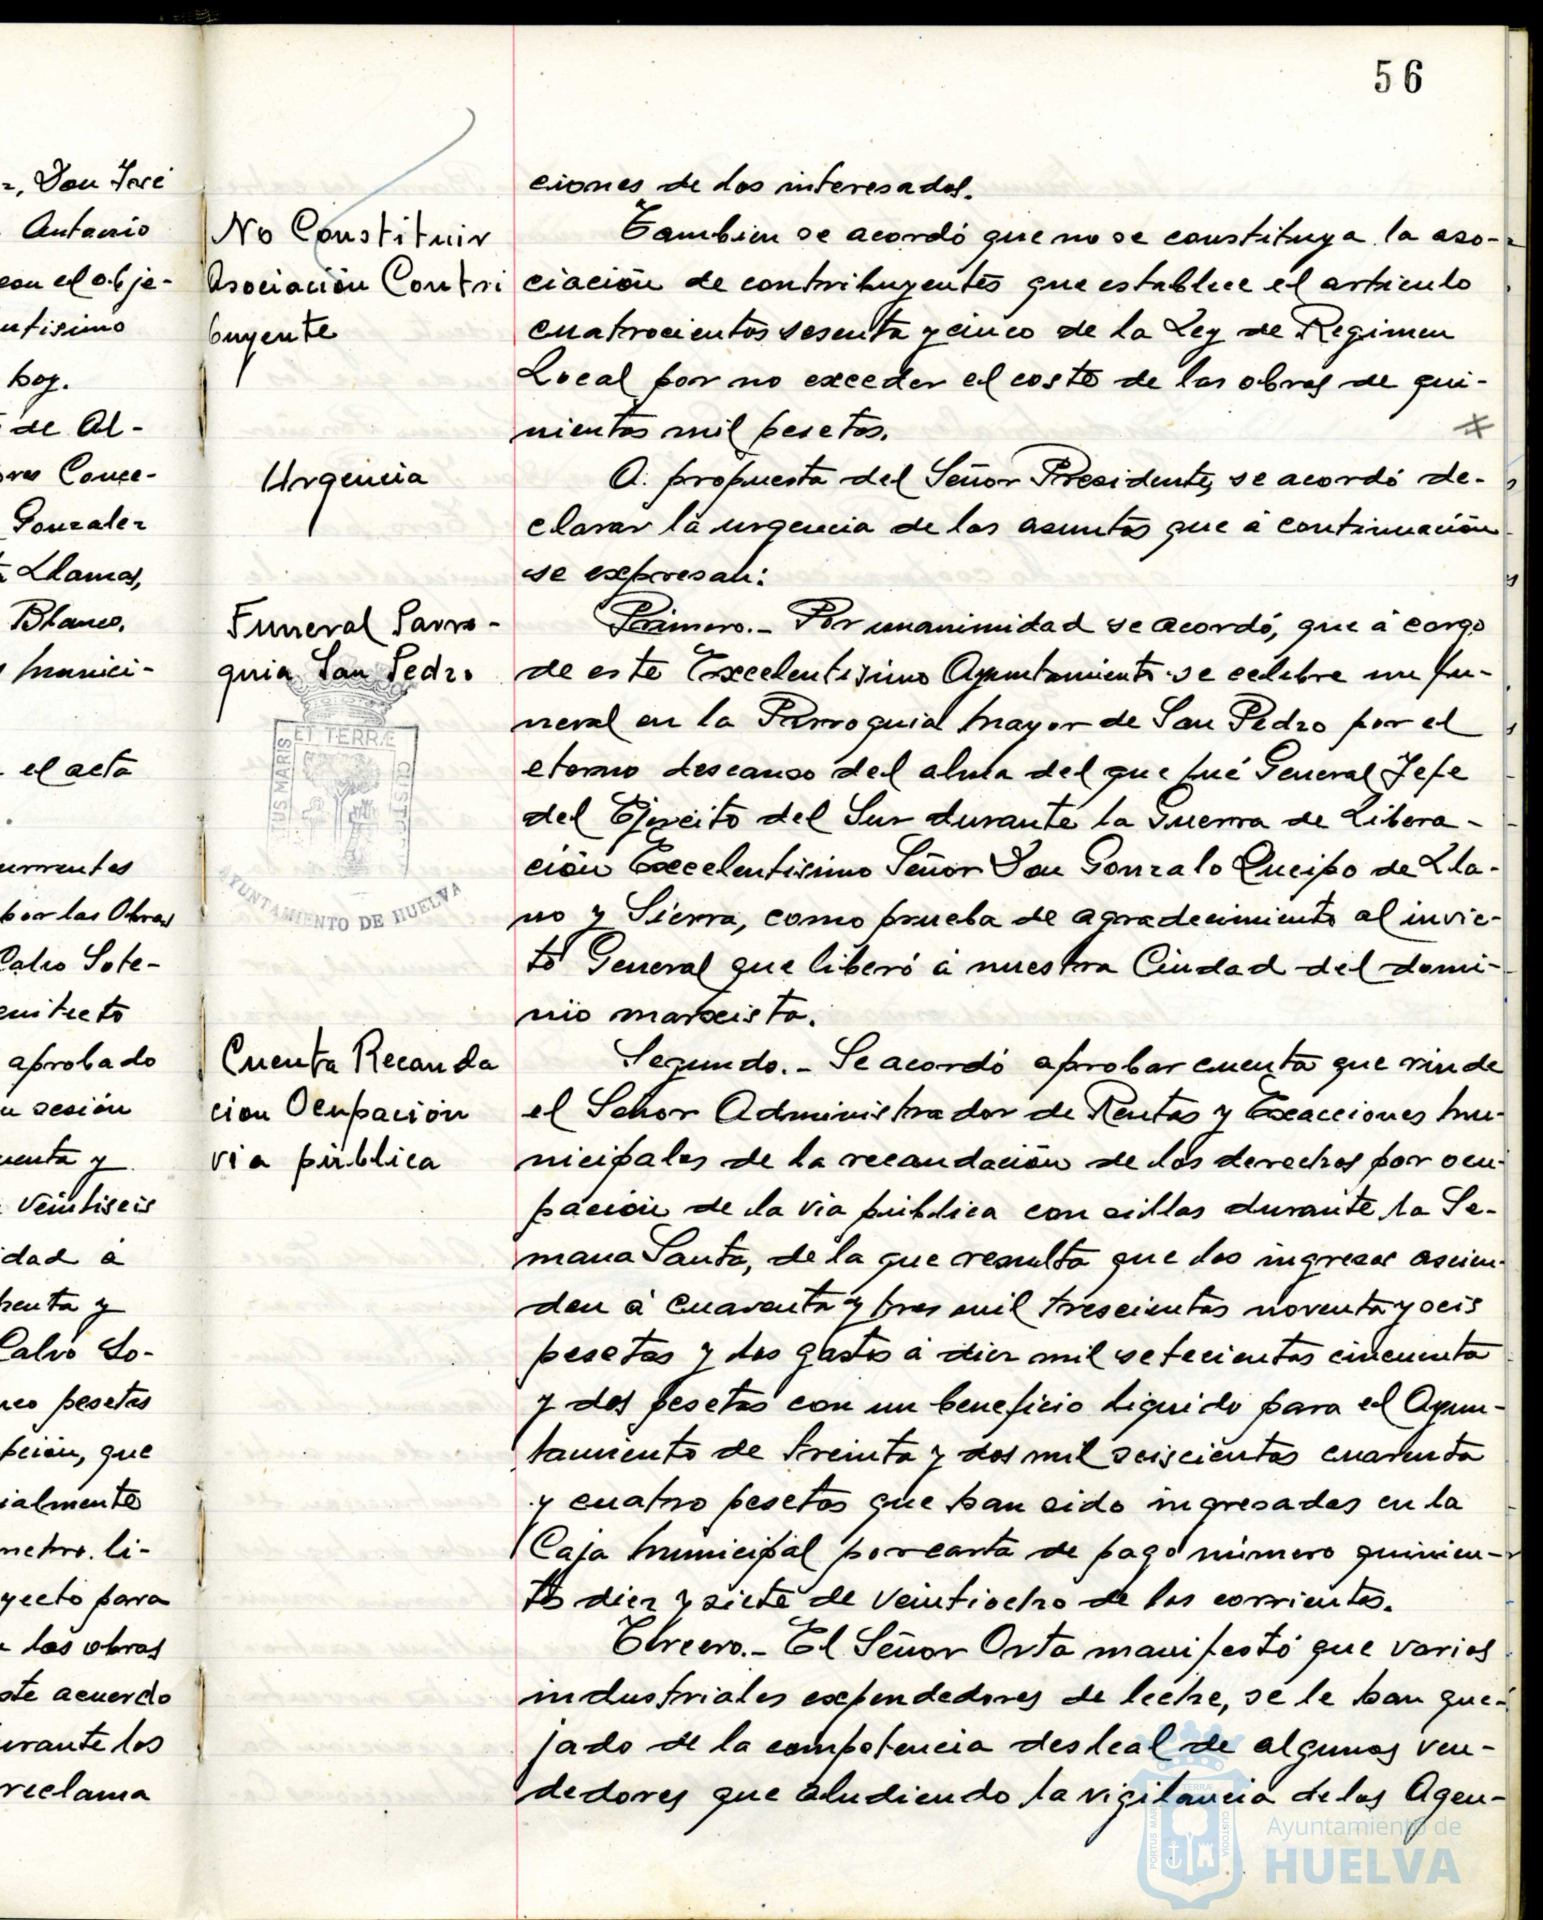 56
z, Don José
Antonio
con el obje-
ntisimo
hoy.
de Al-
ores Conce-
Gonzalez
Llamas,
Blanco,
s Munici-
el acta
urrentes
por las Obras
Calvo Sote-
quitecto
aprobado
n sesión
uenta y
veintiseis
idad á
henta y
Calvo So-
nco pesetas
pción, que
ialmente
metro li-
yecto para
las obras
ste acuerdo
urante los
reclama
No Constituir
Asociación Contri
buyente
Urgencia
Funeral Parro-
quia San Pedro
Cuenta Recauda
cion Ocupación
via pública
ciones de los interesados.
Tambien se acordó que no se constituya la aso-
ciación de contribuyentes que establece el articulo
cuatrocientos sesenta y cinco de la Ley de Regimen
Local por no exceder el costo de las obras de qui-
nientas mil pesetas.
A propuesta del Señor Presidente, se acordó de-
clarar la urgencia de los asuntos que á continuación
se expresan:
Primero.- Por unanimidad se acordó, que á cargo
de este Excelentisimo Ayuntamiento se celebre un fu-
neral en la Parroquia Mayor de San Pedro por el
eterno descanso del alma del que fué General Jefe
del Ejercito del Sur durante la Guerra de Libera-
ción Excelentisimo Señor Don Gonzalo Queipo de Lla-
no y Sierra, como prueba de agradecimiento al invic-
to General que liberó á nuestra Ciudad del domi-
nio marxista.
Segundo.- Se acordó aprobar cuenta que rinde
el Señor Administrador de Rentas y Exacciones Mu-
nicipales de la recaudación de los derechos por ocu-
pación de la via pública con sillas durante la Se-
mana Santa, de la que resulta que los ingresos ascien-
den á cuarenta y tres mil trescientas noventa y seis
pesetas y los gastos á diez mil setecientas cincuenta
y dos pesetas con un beneficio liquido para el Ayun-
tamiento de treinta y dos mil seiscientas cuarenta
y cuatro pesetas que han sido ingresadas en la
Caja Municipal por carta de pago número quinien-
tos diez y siete de veintiocho de los corrientes.
Tercero.- El Señor Orta manifestó que varios
industriales expendedores de leche, se le han que-
jado de la competencia desleal de algunos ven-
dedores que aludiendo la vigilancia de los Agen-
PORTUS MARIS ET TERRÆ CUSTODIA
AYUNTAMIENTO DE HUELVA
PORTUS MARIS ET TERRAE CUSTODIA
Ayuntamiento de
HUELVA